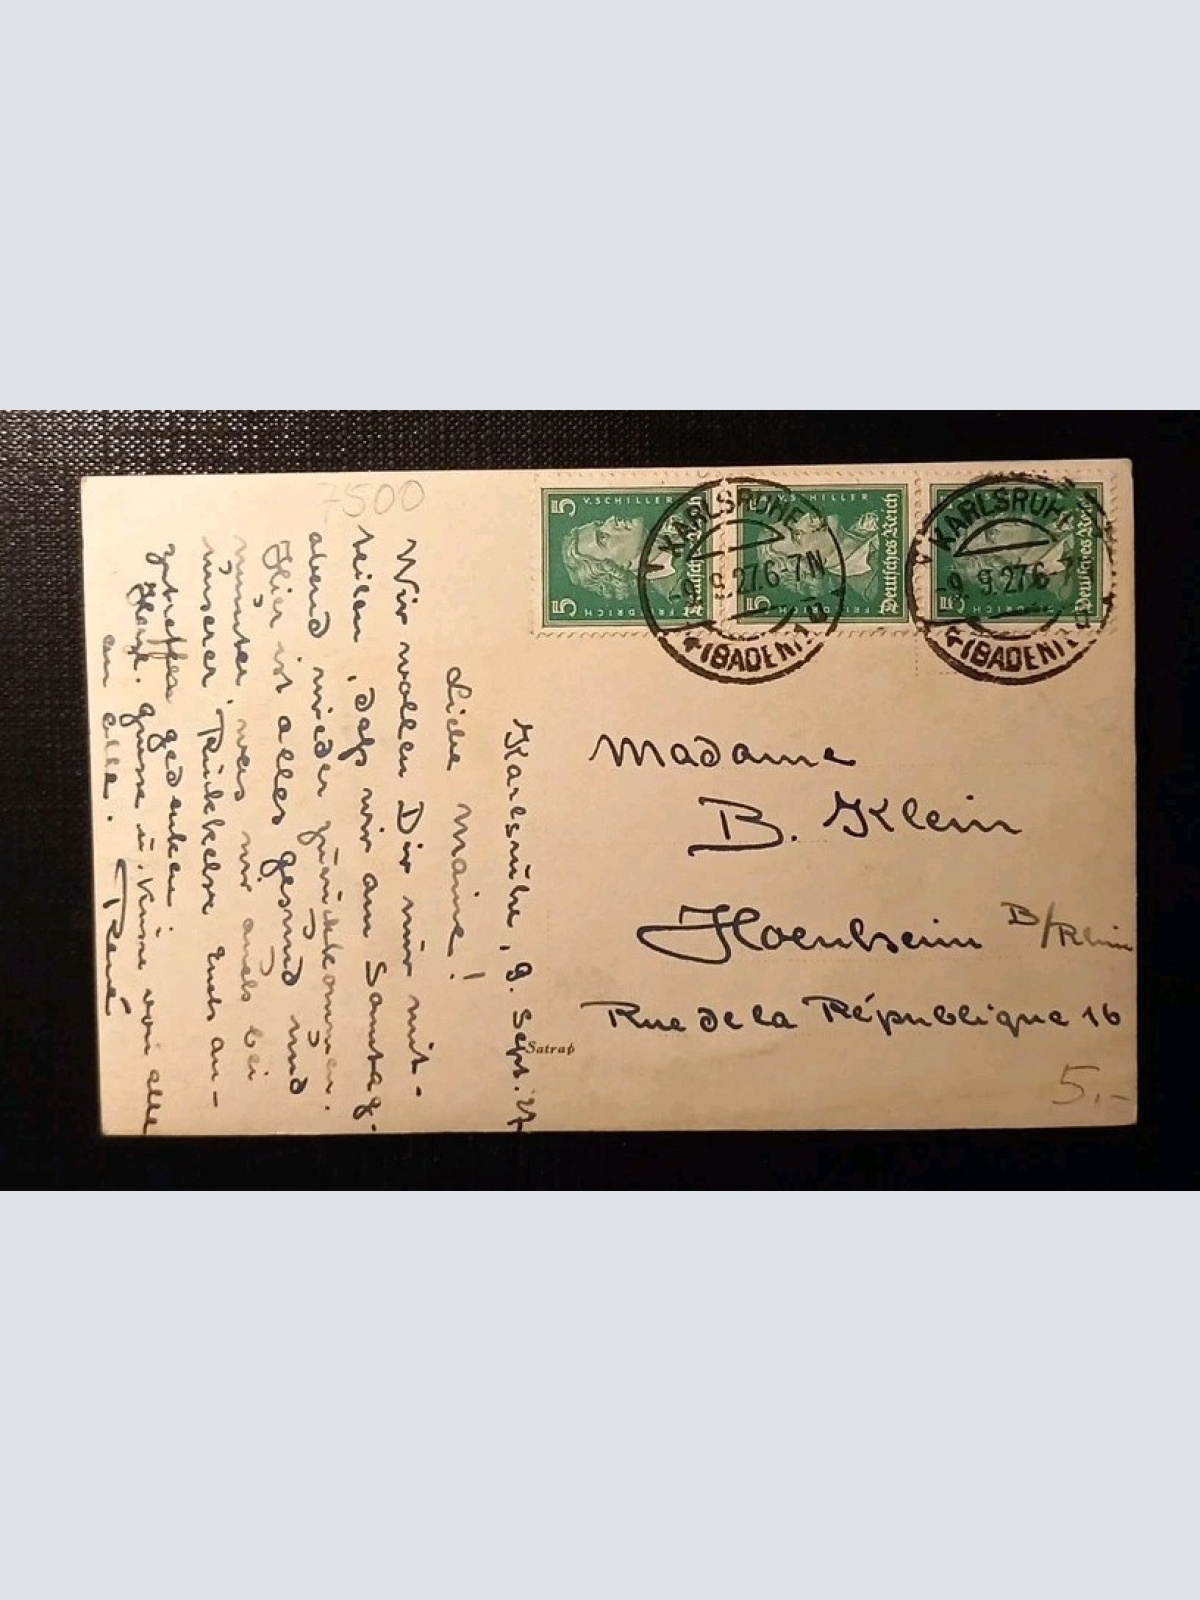 7500
Karlsruhe, 9. Sept. 27
Liebe Mama!
Wir wollen Dir nur mit-
teilen, daß wir am Samstag-
abend wieder zurückkommen.
Hier ist alles gesund und
munter, was wir auch bei
unserer Rückkehr Euch an-
zutreffen gedenken.
Herzl. Grüsse u. Küsse von alle
an alle. René
Satrap
5 V. SCHILLER
5 FRIEDRICH
Deutsches Reich
V. SCHILLER
5 FRIEDRICH
Deutsches Reich
Deutsches Reich
KARLSRUHE
-9. 9.27.6-7N
(BADEN) 1
KARLSRUHE
9. 9.27.6-7
(BADEN)
Madame
B. Klein
Hoenheim B/Rhin
Rue de la République 16
5.-